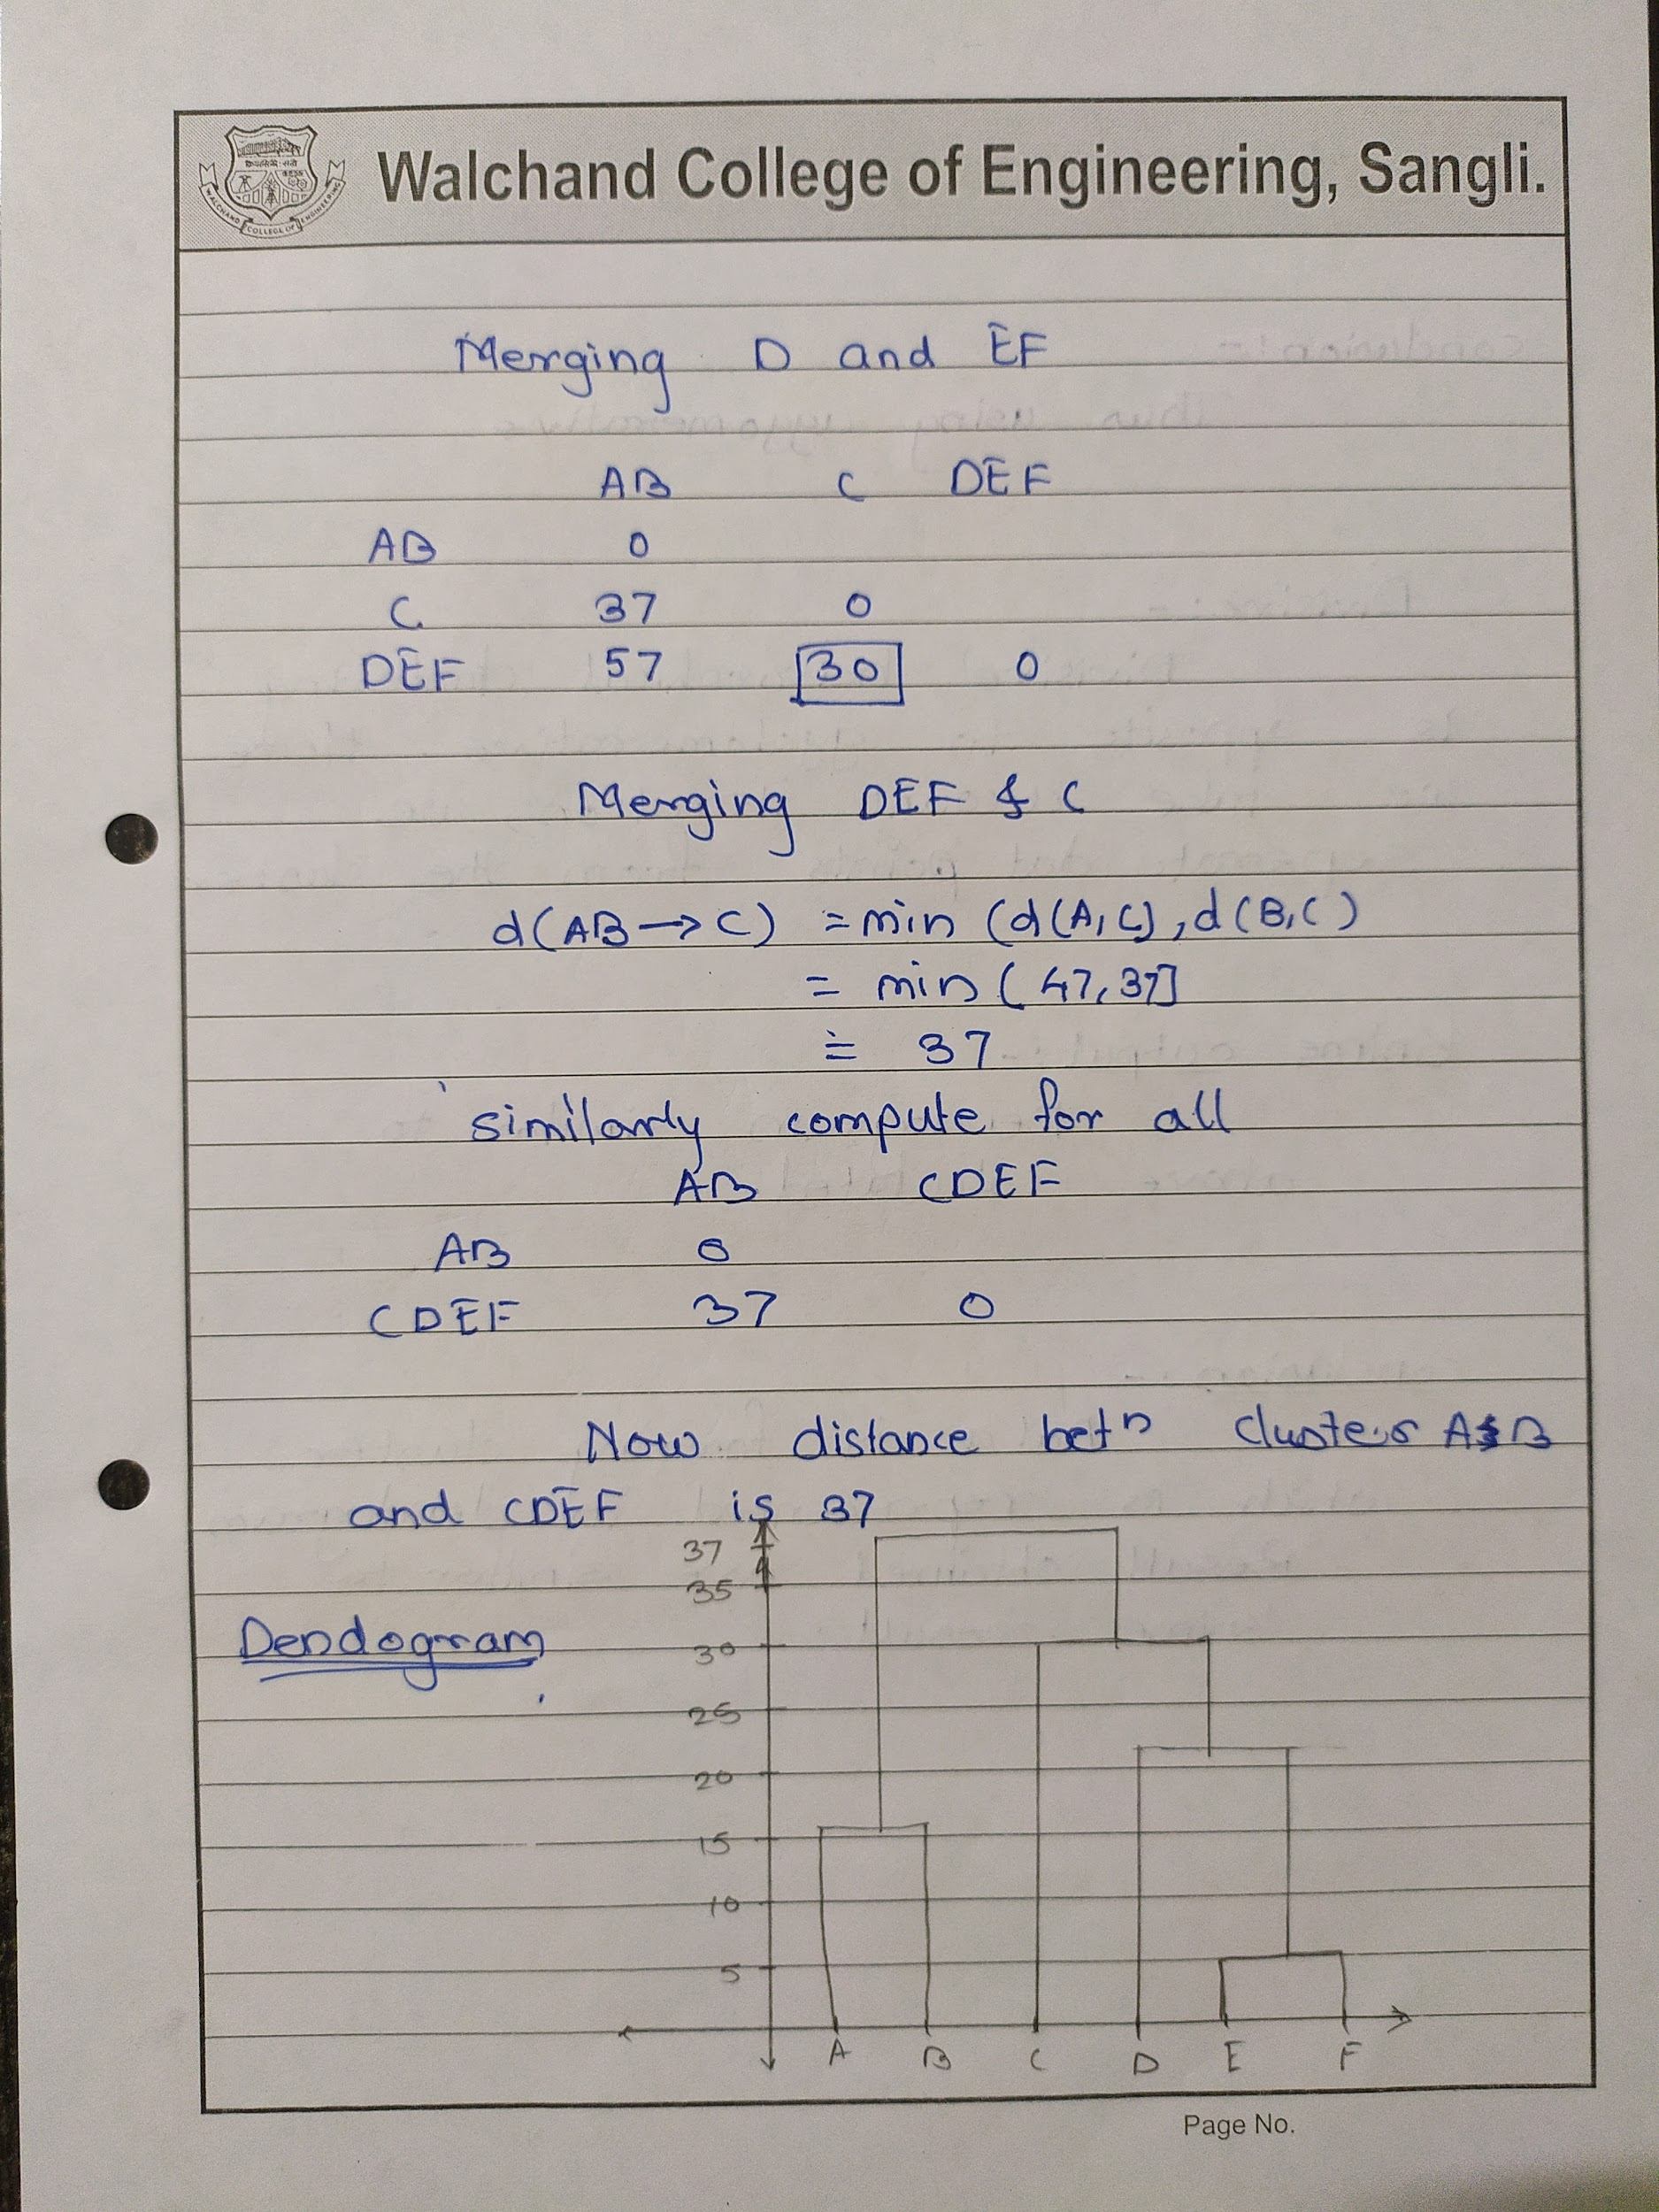 Walchand College of Engineering, Sangli.
WALCHAND COLLEGE OF ENGINEERING
Merging D and EF
AB C DEF
AB 0
C 37 0
DEF 57 30 0
Merging DEF & C
d(AB→C) = min (d(A,C), d(B,C)
= min (47,37]
= 37
similarly compute for all
AB CDEF
AB 0
CDEF 37 0
Now distance betn clusters A&B
and CDEF is 37
37
35
Dendogram
30
25
20
15
10
5
A B C D E F
Page No.